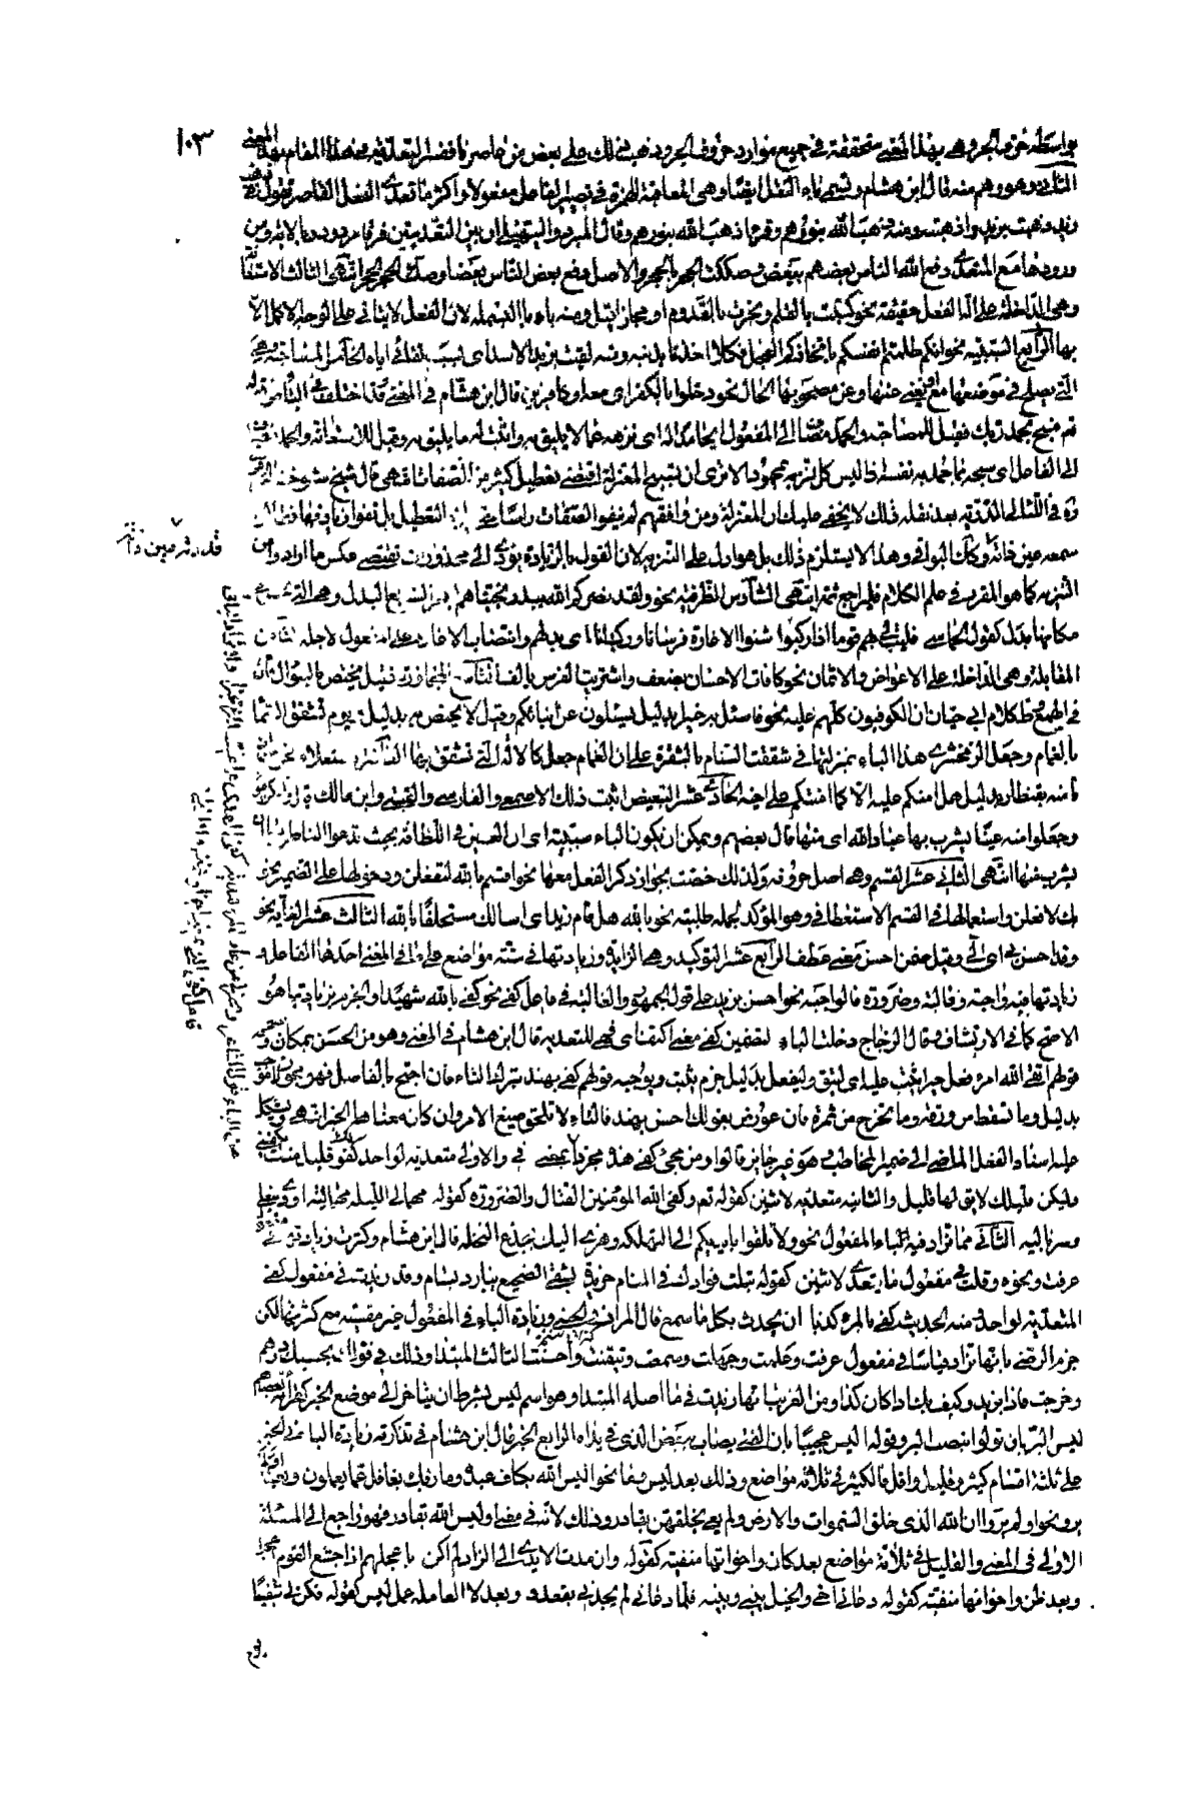 ١٠٣
بواسطة حرف الجر وهي بهذا المعنى متحققة في جميع موارد حروف الجر وذهب على بعض من عاصرنا فسر التعدية في هذا المقام بهذا المعنى
الثاني وهو وهم منه قال ابن هشام وتسمى باء النقل ايضا وهي المعاقبة للهمزة في تصيير الفاعل مفعولا واكثر ما تعدى الفعل القاصر تقول ذهب
زيد وذهبت بزيد واذهبته ومنه ذهب الله بنورهم وقرئ اذهب الله نورهم وقال المبرد والسهيلي ان بين التعديتين فرقا مردود بالاية ومن
ورودها مع المتعدي دفع الله الناس بعضهم ببعض وصككت الحجر بالحجر والاصل دفع بعض الناس بعضا وصك الحجر الحجر انتهى الثالث الاستعانة
وهي الداخلة على الة الفعل حقيقة نحو كتبت بالقلم ونجرت بالقدوم او مجازا قيل ومنه باء البسملة لان الفعل لا يتاتى على الوجه الاكمل الا
بها الرابع السببية نحو انكم ظلمتم انفسكم باتخاذكم العجل فكلا اخذنا بذنبه ومنه لقيت بزيد الاسد اى بسبب لقائي اياه الخامس المصاحبة وهي
التي يصلح في موضعها مع او يغني عنها وعن مصحوبها الحال نحو دخلوا بالكفر اى معه او كافرين قال ابن هشام في المغني وقد اختلف في الباء من قوله
تع فسبح بحمد ربك فقيل للمصاحبة والحمد مضاف الى المفعول اى حامدا له اى نزهه عما لا يليق به واثبت له ما يليق به وقيل للاستعانة والحمد مضاف
الى الفاعل اى سبحه بما حمد به نفسه اذ ليس كل تنزيه بمحمود الا ترى ان تسبيح المعتزلة اقتضى تعطيل كثير من الصفات انتهى قال شيخ شيوخنا
بعد نقله ذلك لا يخفى عليك ان المعتزلة ومن وافقهم لم ينفوا الصفات راسا التعطيل بل نفوا زيادتها
وهذا لا يستلزم ذلك بل هو ادل على التنزيه لان القول بالزيادة يؤدى الى محذورات تقتضى عكس ما ارادوا من
التنزيه كما هو المقرر في علم الكلام فليراجع ثمة انتهى السادس الظرفية نحو ولقد نصركم الله ببدر ونجيناهم بسحر السابع البدل وهي التي
مكانها بدل كقول الحماسي فليت لي بهم قوما اذا ركبوا شنوا الاغارة فرسانا وركبانا اى بدلهم وانتصاب الاغارة على انه مفعول لاجله الثامن
المقابلة وهي الداخلة على الاعواض والاثمان نحو كافات الاحسان بضعف واشتريت الفرس بالف التاسع المجاوزة فقيل يختص بالسؤال
كلام ابي حيان ان الكوفيون كلهم عليه نحو فاسئل به خبيرا بدليل يسئلون عن انبائكم وقيل لا يختص به بدليل ويوم تشقق السماء
بالغمام وجعل الزمخشري هذا الباء بمنزلتها في شققت السنام بالشفرة على ان الغمام جعل كالالة التي تشقق بها العاشر الاستعلاء نحو من ان
تامنه بقنطار بدليل هل امنكم عليه الا كما امنتكم على اخيه الحادي عشر التبعيض اثبت ذلك الاصمعي والفارسي والقتيبي وابن مالك
وجعلوا منه عينا يشرب بها عباد الله اى منها قال بعضهم ويمكن ان يكون الباء سببية اى ان العين في اللطافة بحيث تدعوا الناظر
يشرب منها انتهى الثاني عشر القسم وهي اصل حروفه ولذلك خصت بجواز ذكر الفعل معها نحو اقسم بالله لتفعلن ودخولها على الضمير نحو
بك لافعلن واستعمالها في القسم الاستعطافي وهو المؤكد لجملة طلبية نحو بالله هل قام زيد اى اسالك مستحلفا بالله الثالث عشر الغاية نحو
وقد احسن بي اى الي وقيل ضمن احسن معنى لطف الرابع عشر التوكيد وهي الزايدة وزيادتها في ستة مواضع على ما في المغني احدها الفاعل و
زيادتها فيه واجبة وغالبة وضرورة فالواجبة نحو احسن بزيد على قول الجمهور والغالبة في فاعل كفى نحو كفى بالله شهيدا والجزم بزيادتها هو
الاصح كما في الارتشاف وقال الزجاج دخلت الباء لتضمين كفى معنى اكتف اى فهي للتعدية قال ابن هشام في المغني وهو من الحسن بمكان ويصححه
قولهم اتقى الله امرؤ فعل خيرا يثب عليه اى ليتق وليفعل بدليل جزم يثب ويوجبه قولهم كفى بهند بترك التاء فان احتج بالفاصل فهو مجوز لا موجب
بدليل وما تسقط من ورقة وما تخرج من ثمرة فان عورض بقولك احسن بهند فالتاء لا تلحق صيغ الامر وان كان معناها الخبر انتهى ويشكل
عليه اسناد الفعل الماضي الى ضمير المخاطب وهو غير جايز قالوا ومن مجئ كفى هذه مجردة والاولى متعدية لواحد كقوله قليل منك يكفيني
ولكن قليلك لا يقال له قليل والثانية متعدية لاثنين كقوله تع وكفى الله المؤمنين القتال والضرورة كقوله مهما لي الليلة مهما ليه اودى بنعلي
وسرباليه الثاني مما تزاد فيه الباء المفعول نحو ولا تلقوا بايديكم الى التهلكة وهزي اليك بجذع النخلة قال ابن هشام وكثرت زيادتها في مفعول
عرفت ونحوه وقلت في مفعول ما يتعدى لاثنين كقوله تبلت فؤادك في المنام خريدة تشفي الضجيع ببارد بسام وقد زيدت في مفعول كفى
المتعدية لواحد ومنه الحديث كفى بالمرء كذبا ان يحدث بكل ما سمع قال المرادي في الجنى وزيادة الباء في المفعول غير مقيسة مع كثرتها لكن
جزم الرضي بانها تزاد قياسا في مفعول عرفت وعلمت وجهلت وسمعت وتيقنت واحسست الثالث المبتدا وذلك في قولك بحسبك درهم
وخرجت فاذا بزيد وكيف بك اذا كان كذا ومن الغريب انها زيدت في ما اصله المبتدا وهو اسم ليس بشرط ان يتاخر الى موضع الخبر كقراءة بعضهم
ليس البر بان تولوا بنصب البر وقوله اليس عجيبا بان الفتى يصاب ببعض الذي في يديه الرابع الخبر قال ابن هشام في تذكرته زيادة الباء في الخبر
على ثلثة اقسام كثير وقليل واقل فالكثير في ثلاثة مواضع وذلك بعد ليس وما نحو اليس الله بكاف عبده وما ربك بغافل عما يعملون وبعد اولم
يرو نحو اولم يروا ان الله الذي خلق السموات والارض ولم يعي بخلقهن بقادر وذلك لانه في معنى اوليس الله بقادر فهو راجع الى المسئلة
الاولى في المعنى والقليل في ثلاثة مواضع بعد كان واخواتها منفية كقوله وان مدت الايدي الى الزاد لم اكن باعجلهم اذ اجشع القوم اعجل
وبعد ظن واخواتها منفية كقوله دعاني اخي والخيل بيني وبينه فلما دعاني لم يجدني بقعدد وبعد لا العاملة عمل ليس كقوله فكن لي شفيعا